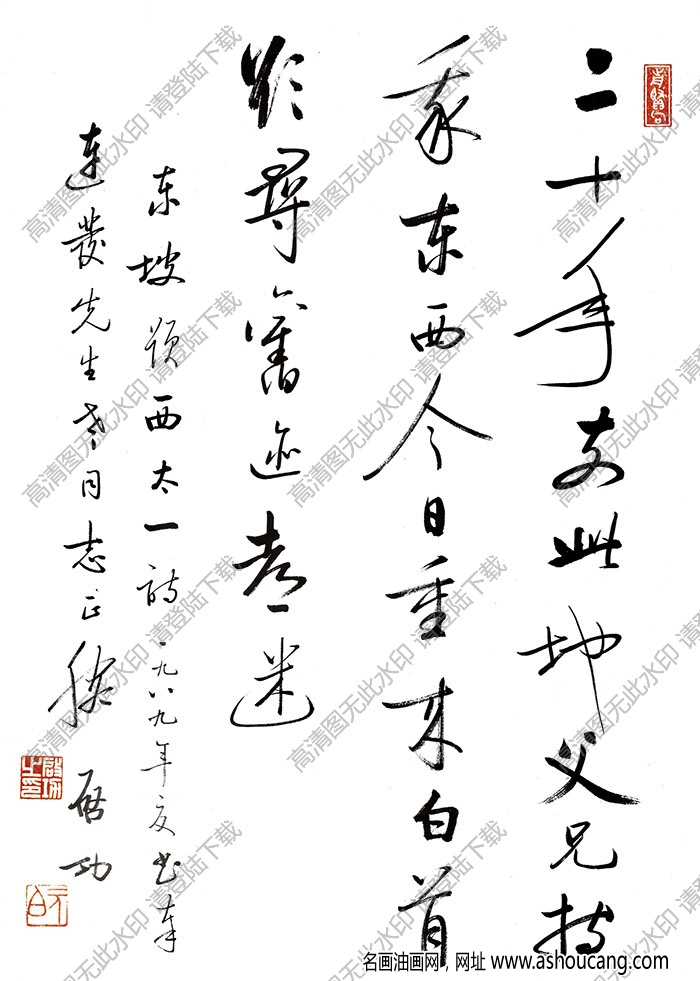 二十年前此地父兄持
我東西今日重来白首
欲尋舊迹都迷
东坡题西太一詩 一九八九年夏书奉
連發先生老同志正腕 启功
啟功之印
元白
高清图无此水印 请登陆下载
名画油画网，网址 www.ashoucang.com